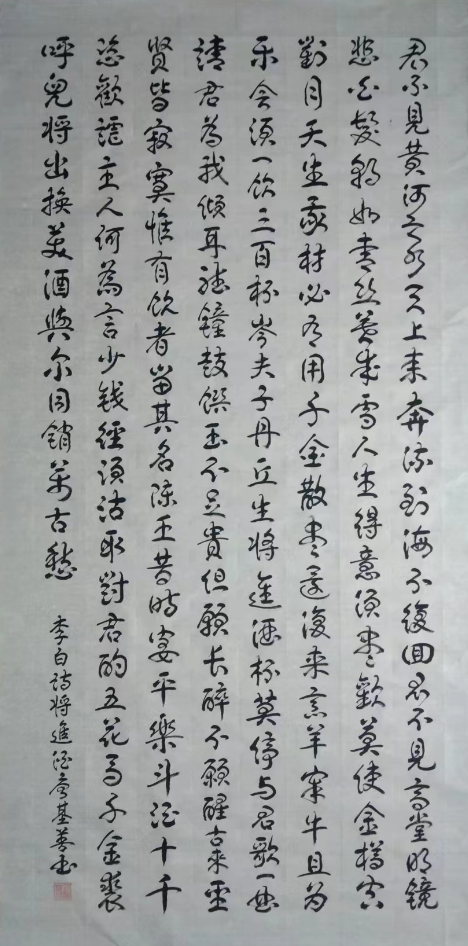 君不見黄河之水天上来奔流到海不復回君不見高堂明鏡
悲白髮朝如青丝暮成雪人生得意須尽歡莫使金樽空
對月天生我材必有用千金散尽還復来烹羊宰牛且为
乐会須一飲三百杯岑夫子丹丘生将進酒杯莫停与君歌一曲
請君為我傾耳聴鐘鼓饌玉不足貴但願长醉不願醒古来聖
贤皆寂寞惟有飲者留其名陈王昔時宴平樂斗酒十千
恣歡謔主人何為言少钱徑須沽取對君酌五花马千金裘
呼兒将出換美酒與尔同銷萬古愁
李白詩将進酒基善书